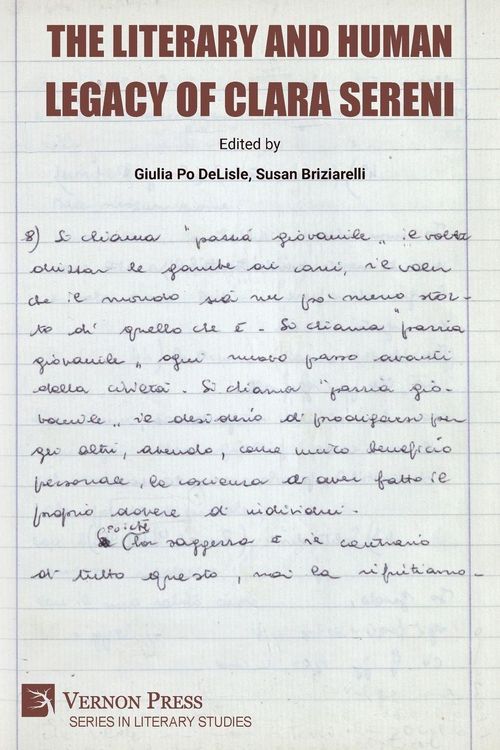 THE LITERARY AND HUMAN
LEGACY OF CLARA SERENI
Edited by
Giulia Po DeLisle, Susan Briziarelli
8) Si chiama "pazzia giovanile„ il voler
drizzar le gambe ai cani, il voler
che il mondo sia un po' meno stor-
to di quello che è. Si chiama "pazzia
giovanile„ ogni nuovo passo avanti
della civiltà. Si chiama "pazzia gio-
vanile„ il desiderio di prodigarsi per
gli altri, avendo, come unico beneficio
personale, la coscienza di aver fatto il
proprio dovere di individui.
poiché
la saggezza è il contrario
di tutto questo, noi la rifiutiamo.
VERNON PRESS
SERIES IN LITERARY STUDIES